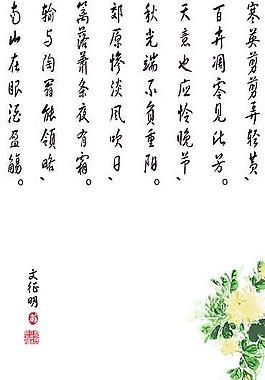 寒英剪剪弄轻黄，
百卉凋零见此芳。
天意也应怜晚节，
秋光端不负重阳。
郊原惨淡风吹日，
篱落萧条夜有霜。
输与陶翁能领略，
南山在眼酒盈觞。
文征明